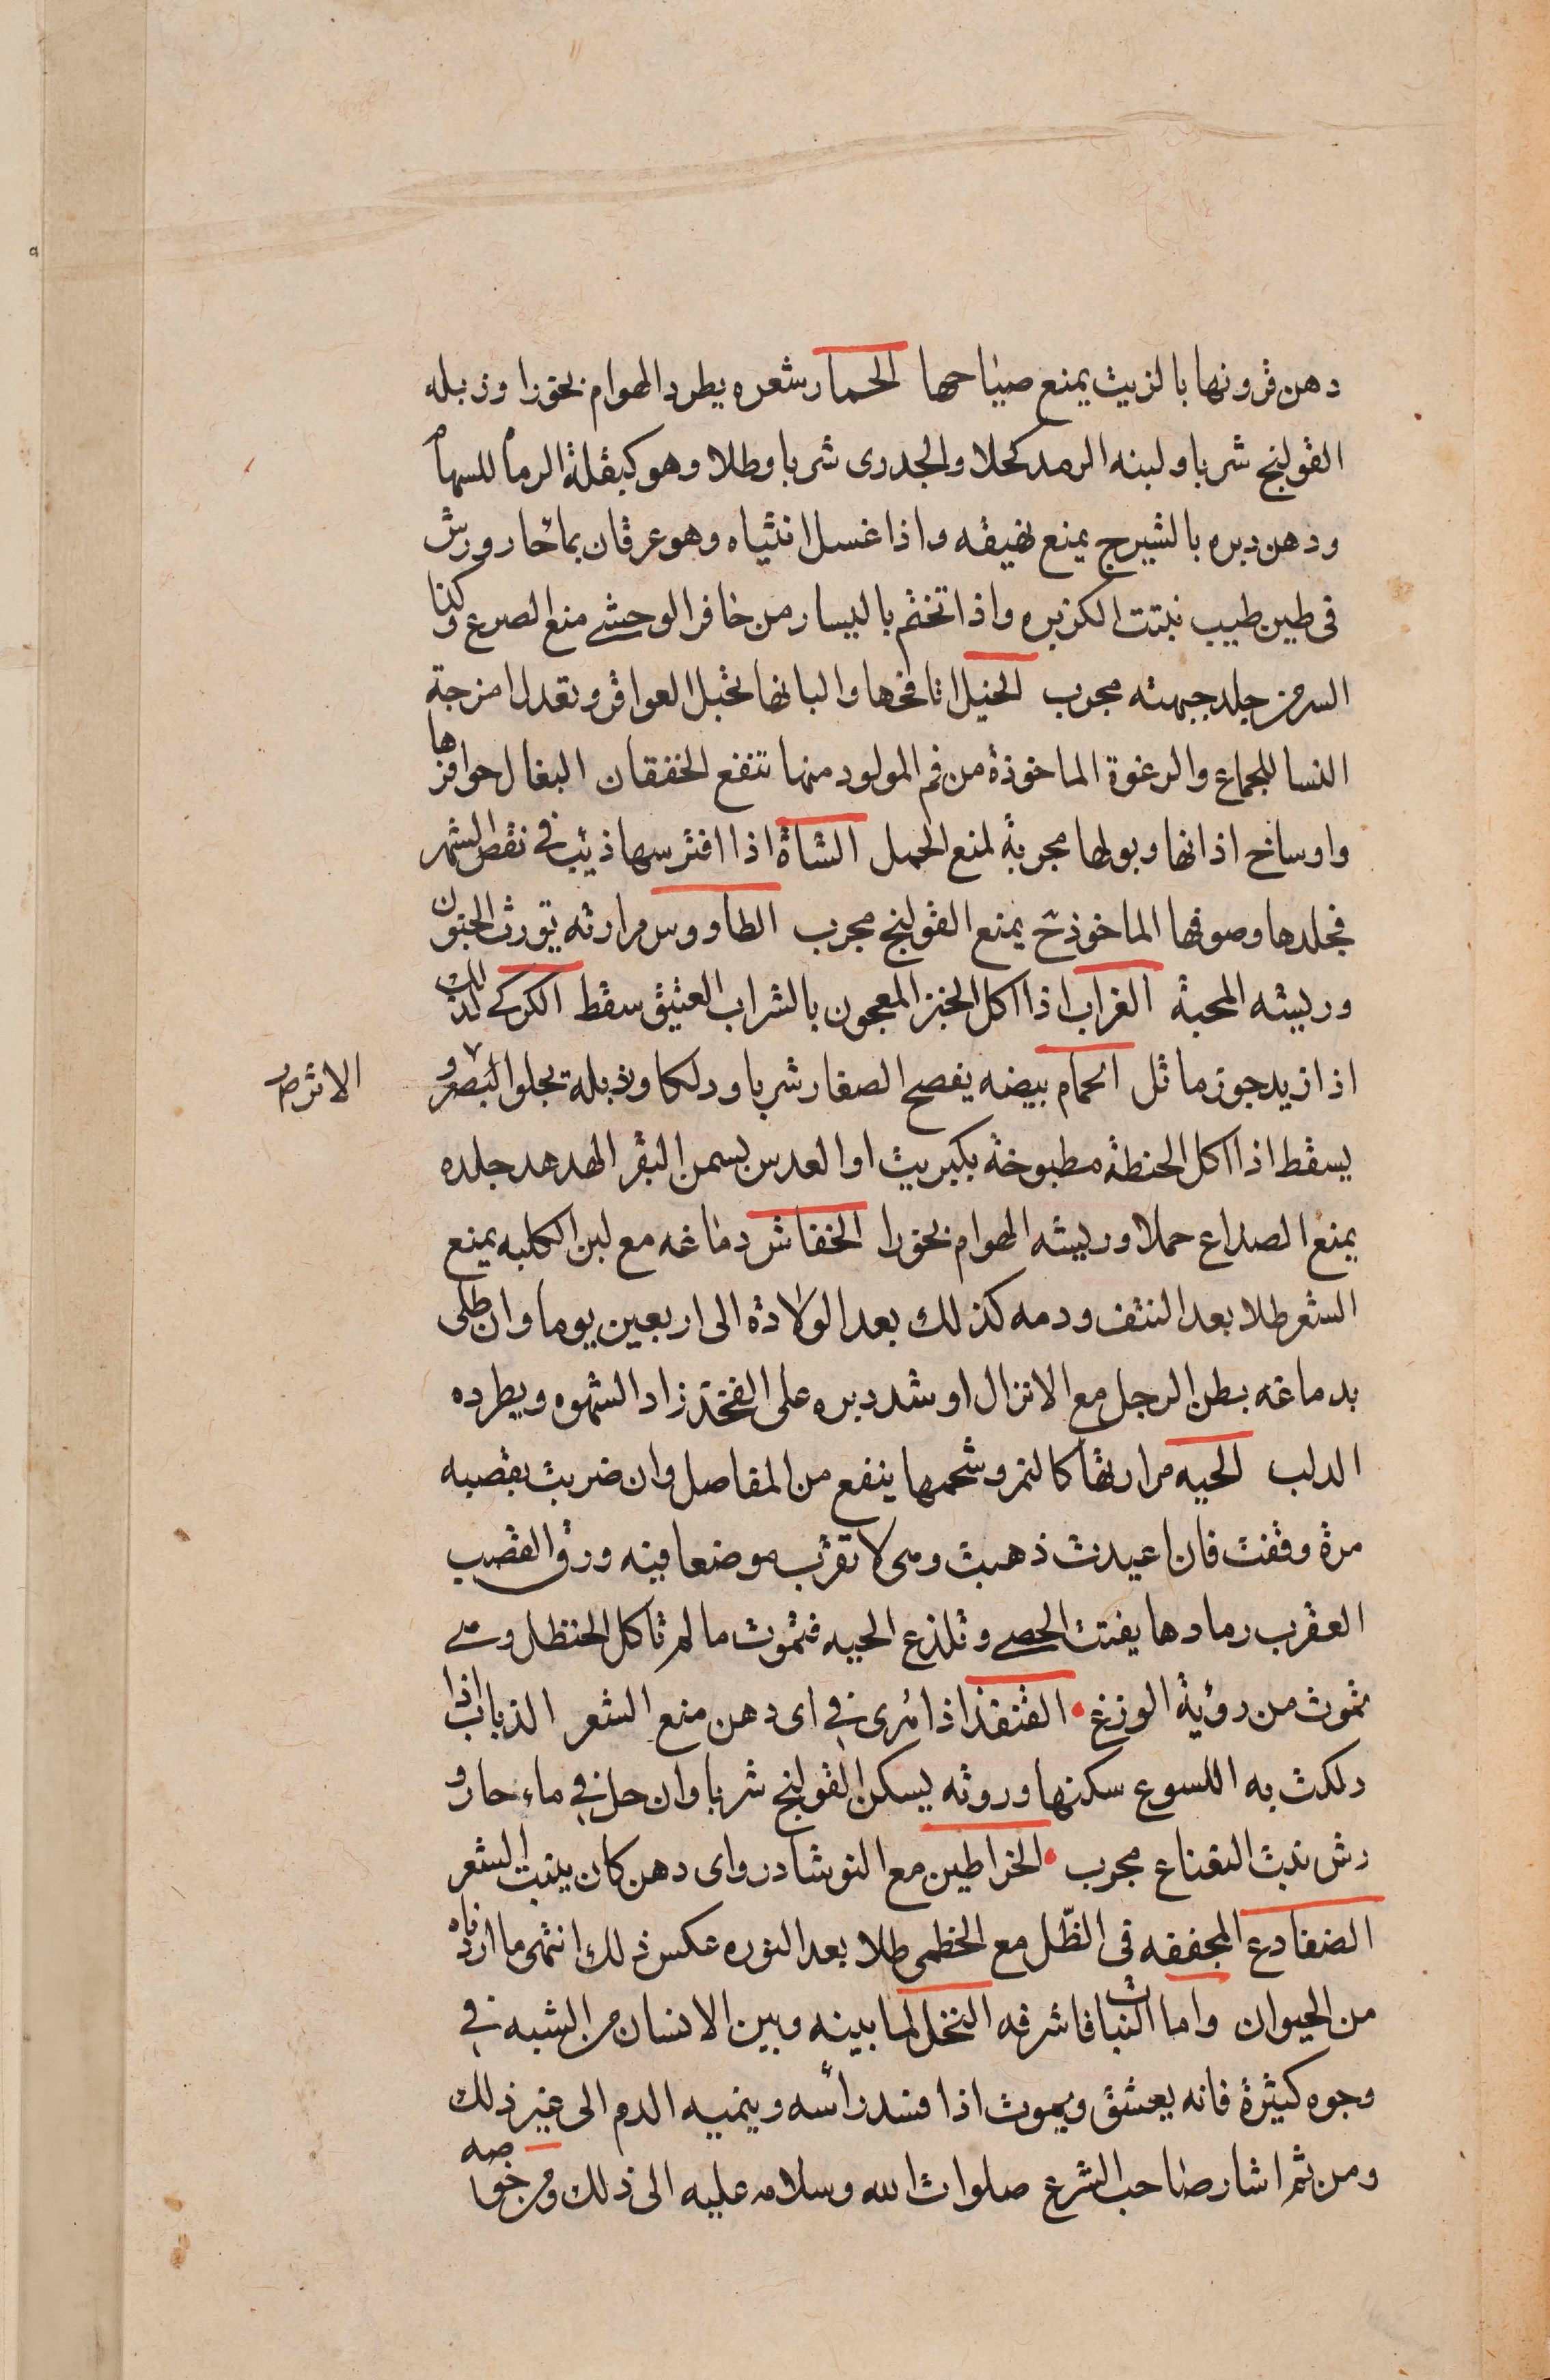 دهن قرونها بالزيت يمنع صياحها الحمار شعره يطرد الهوام بخورا وزبله
القولنج شربا ولبنه الرمد كحلا والجدرى شربا وطلا وهو كبقلة الرماه للسهام
ودهن دبره بالشيرج يمنع نهيقه واذا غسل انثياه وهو عرقان بماء حار ورش
فى طين طيب نبتت الكزبره واذا تختم باليسار من حافر الوحشي منع الصرع وكذا
السير من جلد جبهته مجرب الخيل انافخها والبانها تحبل العواقر وتعدل امزجة
النسا للجماع والرغوة الماخوذة من فم المولود منها تنفع الخفقان البغال حوافرها
واوساخ اذانها وبولها مجربة لمنع الحمل الشاة اذا افترسها ذئب فى نقص الشهر
فجلدها وصوفها الماخوذ ح يمنع القولنج مجرب الطاووس مرارته تورث الجنون
وريشه المحبة الغراب اذا اكل الخبز المعجون بالشراب العتيق سقط الكركي كذلك
اذا زيد جوز ماثل الحمام بيضه يفصح الصغار شربا ودلكا وزبلة يجلوا البصر و
الاثر ص
يسقط اذا اكل الحنطة مطبوخة بكبريت او العدس بسمن البقر الهدهد جلده
يمنع الصداع حملا وريشه الهوام بخورا الخفاش دماغه مع لبن الكلبه يمنع
الشعر طلا بعد النتف ودمه كذلك بعد الولادة الى اربعين يوما وان طلى
بدماغه بطن الرجل مع الانزال او شد دبره على الفخذ زاد الشهوه ويطرده
الدلب الحيه مرارتها كالنمر وشحمها ينفع من المفاصل وان ضربت بقصبه
مرة وقفت فان اعيدت ذهبت وهى لا تقرب موضعا فيه ورق القصب
العقرب رمادها يفتت الحصى وتلذع الحيه فتموت ما لم تاكل الحنظل وهي
تموت من رؤية الوزغ القنفذ اذا هرى في اى دهن منع الشعر الذباب اذا
دلكت به اللسوع سكنها وروثه يسكن القولنج شربا وان حل في ماء حار و
رش نبت النعناع مجرب الخراطين مع النوشادر واى دهن كان ينبت الشعر
الضفادع المجففه فى الظل مع الخطمى طلا بعد النوره عكس ذلك انتهى ما اردناه
من الحيوان واما النبات فاشرفه النخل لما بينه وبين الانسان من الشبه في
وجوه كثيرة فانه يعشق ويموت اذا فسد راسه وينميه الدم الى غير ذلك
ومن ثم اشار صاحب الشرع صلوات الله وسلامه عليه الى ذلك ومن خواصه